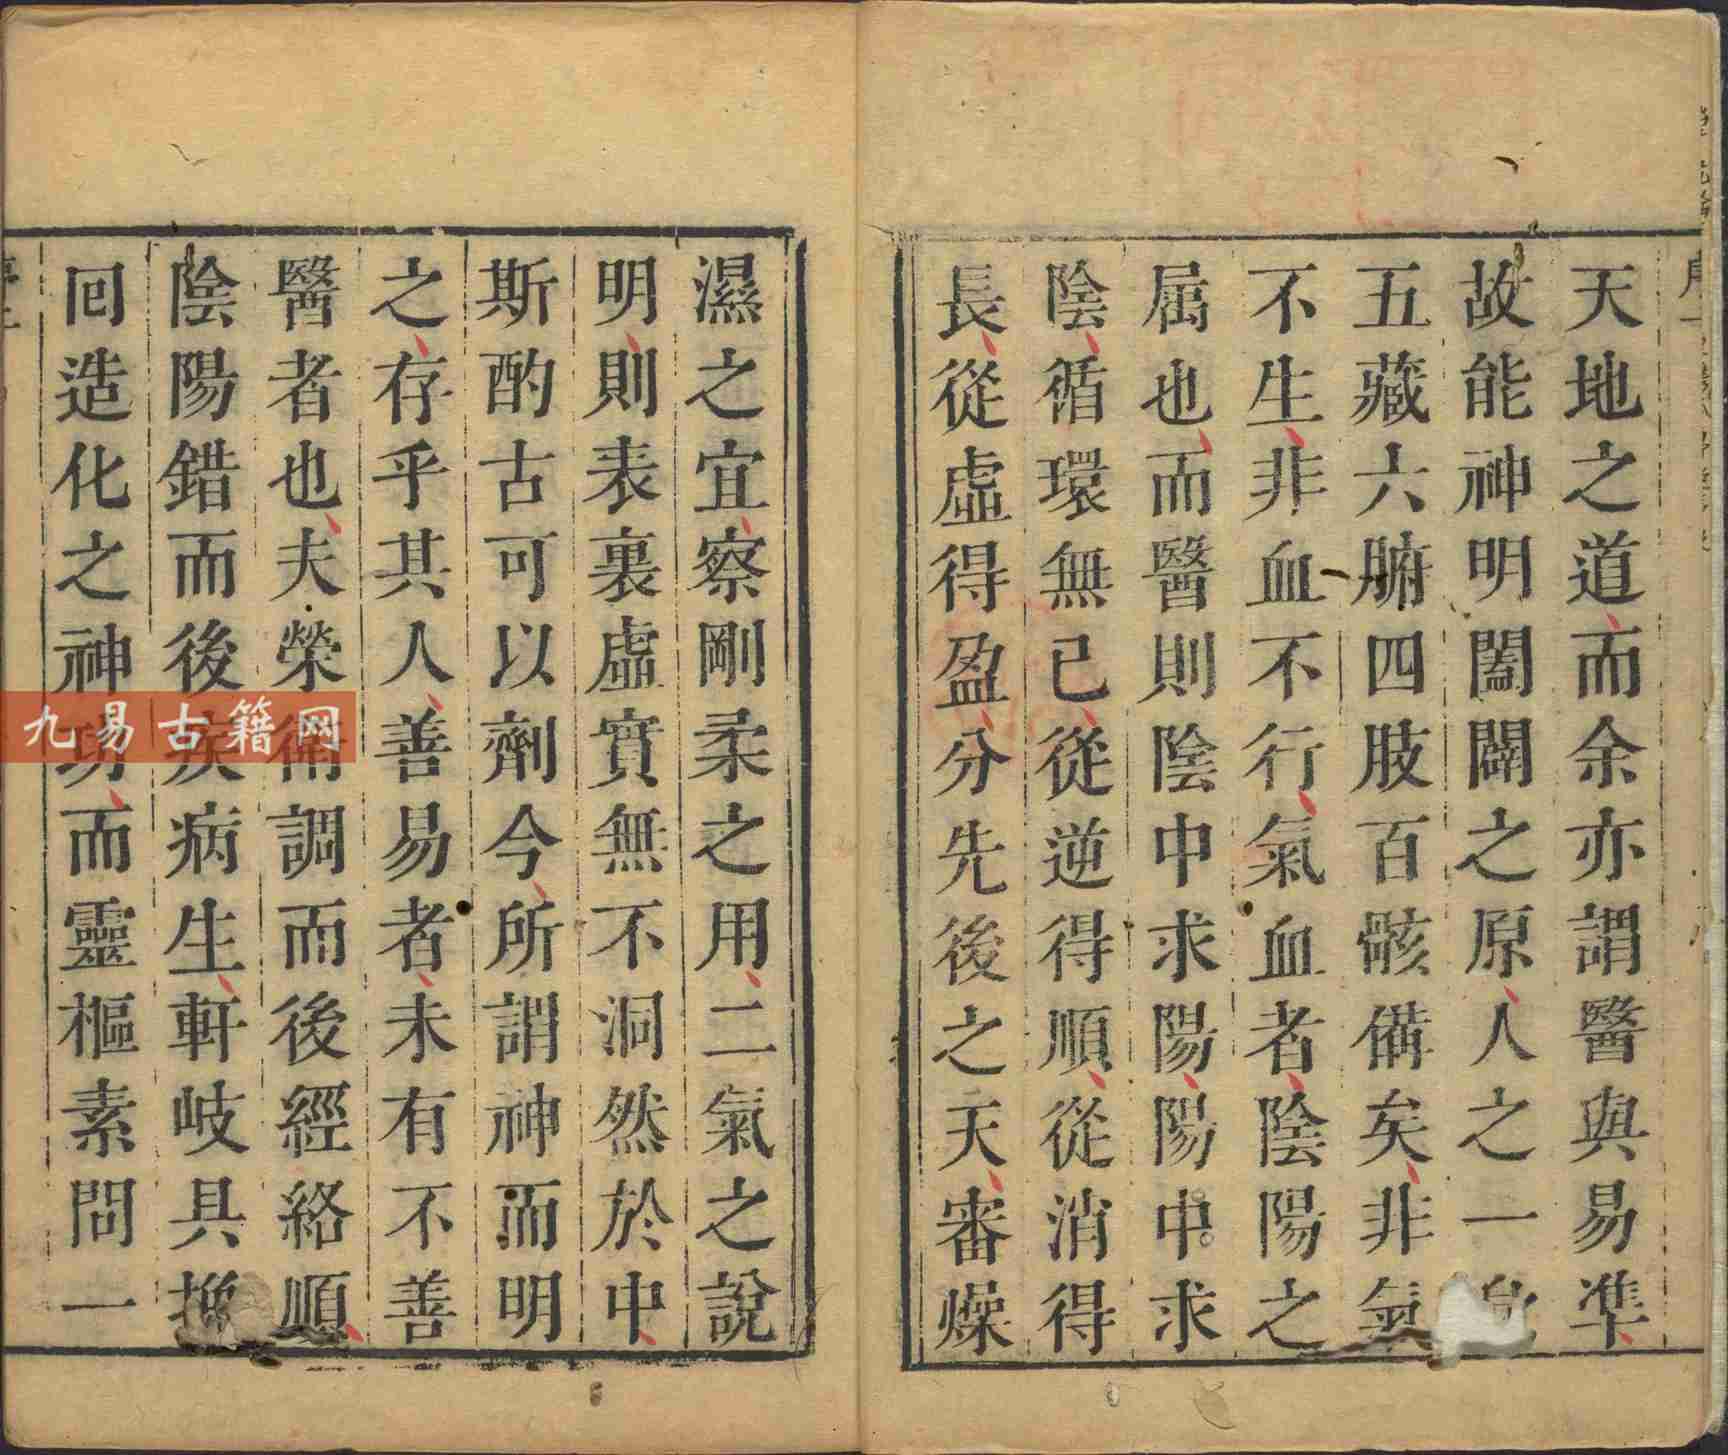 天地之道而余亦謂醫與易準
故能神明闔闢之原人之一
五藏六腑四肢百骸備矣非氣
不生非血不行氣血者陰陽之
屬也而醫則陰中求陽陽中求
陰循環無已從逆得順從消得
長從虛得盈分先後之天審燥
濕之宜察剛柔之用二氣之說
明則表裏虛實無不洞然於中
斯酌古可以劑今所謂神而明
之存乎其人善易者未有不善
醫者也夫榮衛調而後經絡順
陰陽錯而後疾病生軒岐具挽
回造化之神功而靈樞素問一
九易古籍网